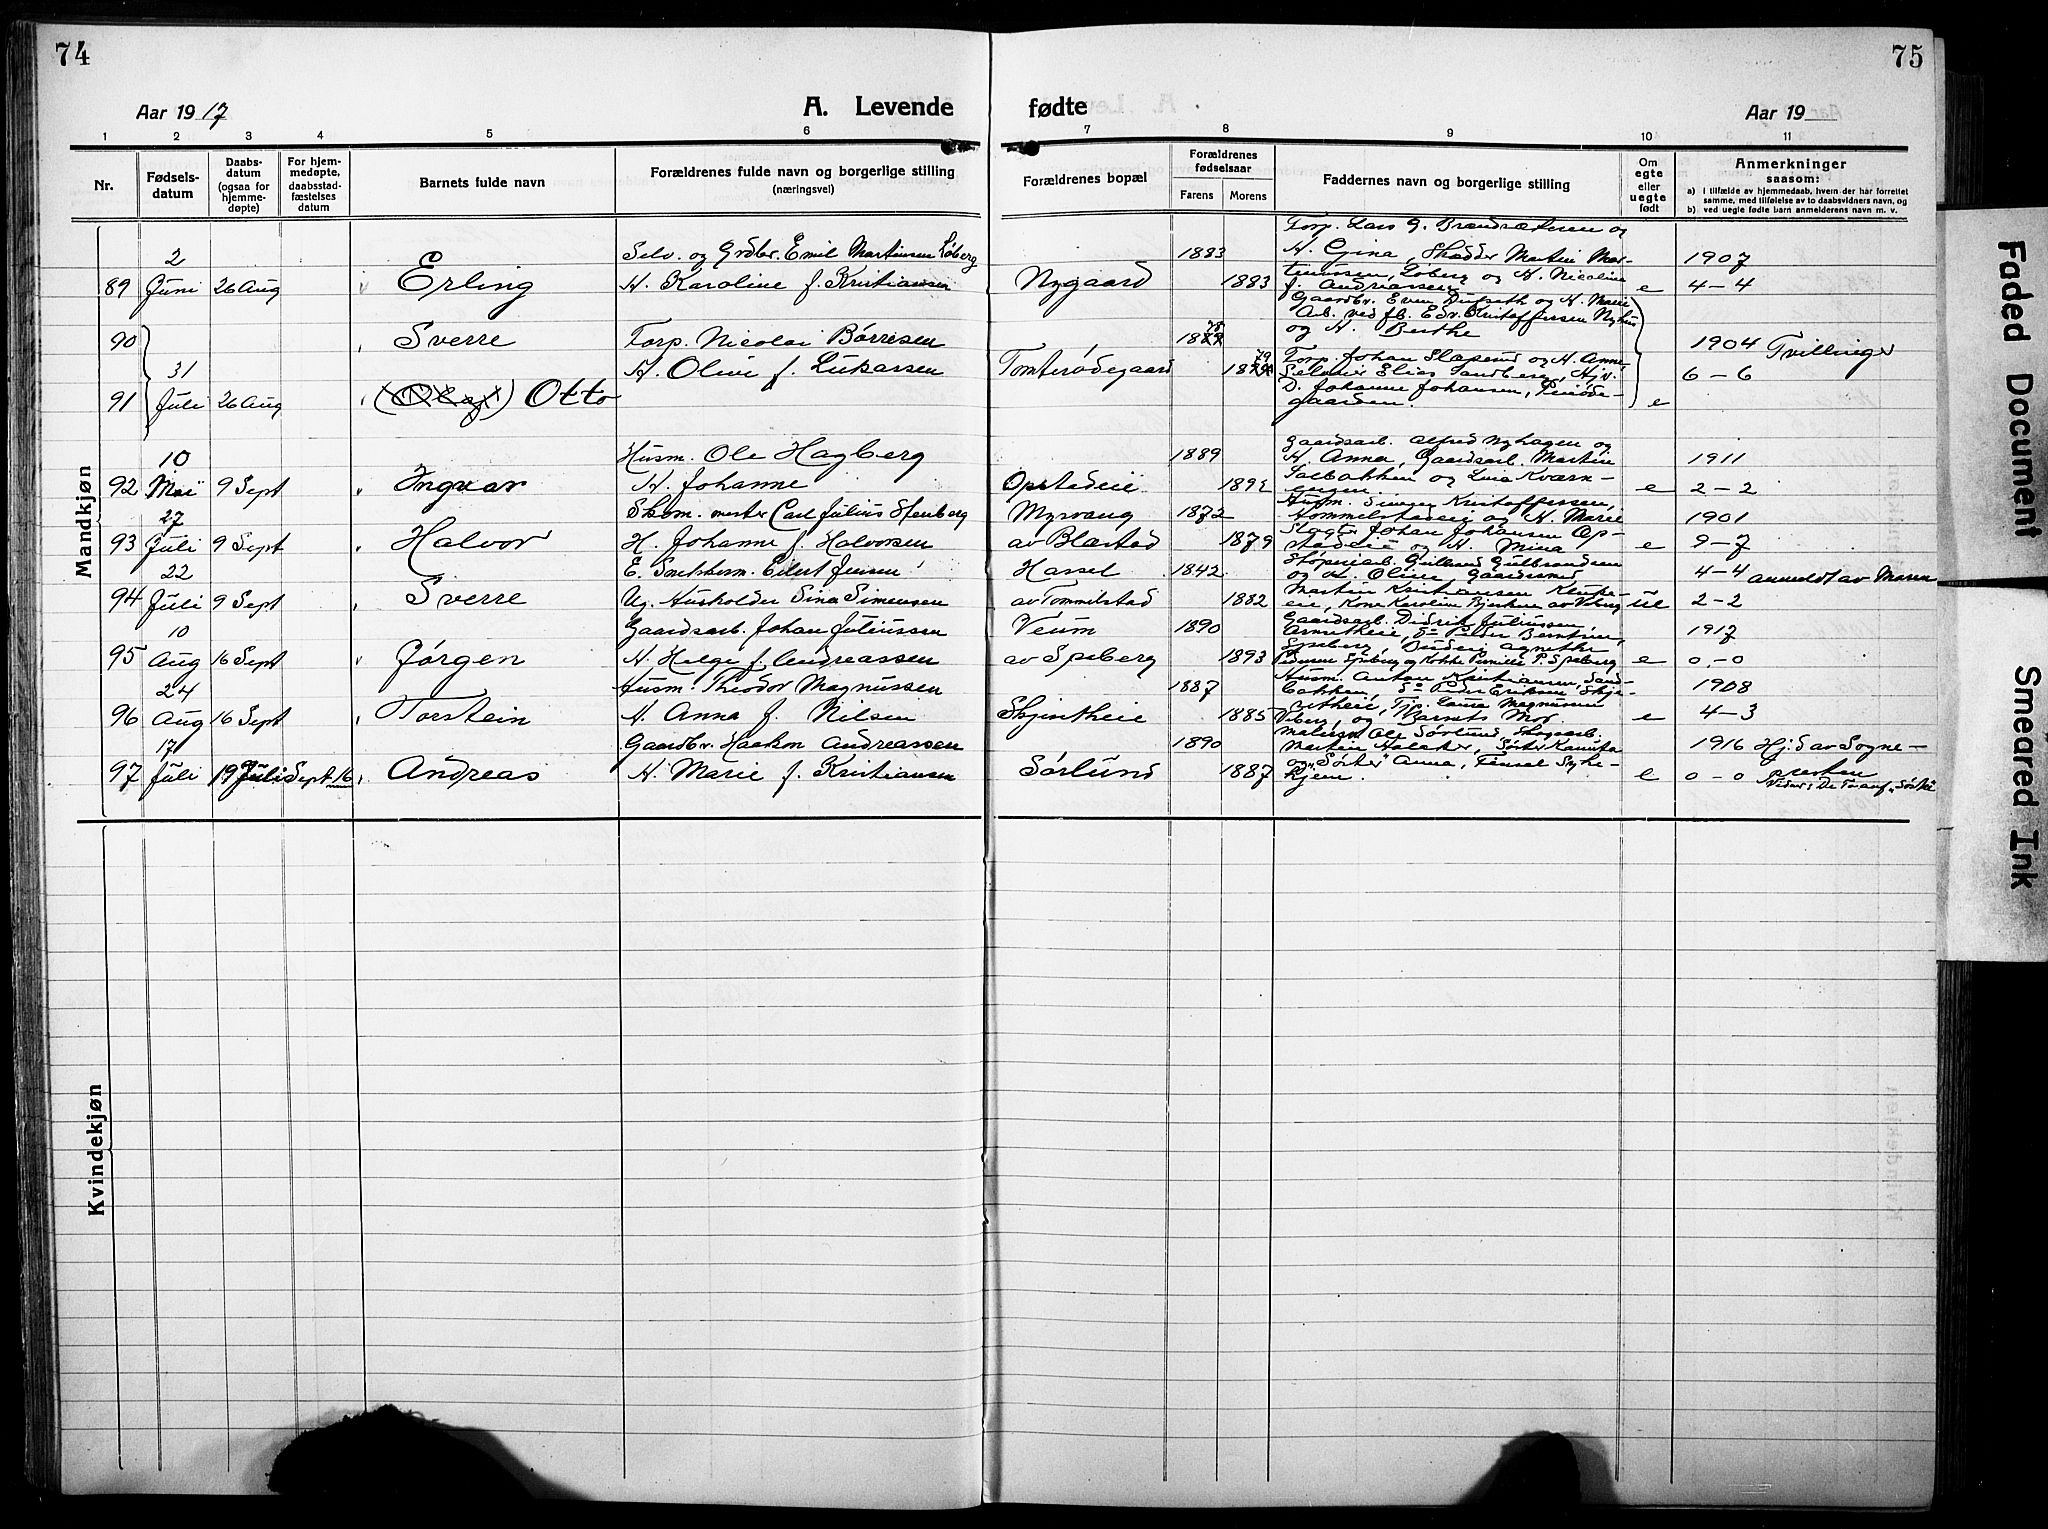 74
75
Aar 1917
A. Levende
fødte
Aar 19
1 2 3 4 5 6 7 8 9 10 11
Nr.
Fødselsdatum
Daabsdatum (ogsaa for hjemmedøpte)
For hjemmedøpte, daabsstadfæstelses datum
Barnets fulde navn
Forældrenes fulde navn og borgerlige stilling
(næringsvei)
Forældrenes bopæl
Forældrenes fødselsaar
Farens
Morens
Faddernes navn og borgerlige stilling
Om egte eller uegte født
Anmerkninger
saasom:
a) i tilfælde av hjemmedaab, hvem der har forrettet samme, med tilføielse av to daabsvidners navn, og
b) ved uegte fødte barn anmelderens navn m. v.
Mandkjøn
89 2 Juni 26 Aug Erling
Selv. og Grdbr. Emil Martinsen Løberg
H. Karoline f. Kristiansen
Nygaard 1883 1883
Torp. Lars G. Brandrætusen og
H. Gina, Martin Mar-
tinussen, Løberg og H. Nicoline
f. Andriassen
e 1907
4-4
90 Sverre
31 Juli
Torp. Nicolai Børresen
H. Olive f. Lukassen
Tomterødegaard 78 79
Gaardbr. Even Dufseth og H. Marie
Arb. ved fb. Edv. Kristoffersen Nyhus
og H. Berthe
1904 Tvillinger
6-6
91 26 Aug (Olaf) Otto
Torp. Johan Slapsrud og H. Anne,
Elias Sandberg,
D. Johanne Johansen,
gaarden.
e
92 10 Mai 9 Sept Ingvar
Husm. Ole Hagberg
H. Johanne
Opstadeie 1889
Gaardsarb. Alfred Nyhagen og
H. Anna, Gaardsarb. Martin
Salbakken og Lina Kværn-
engen
e 1911
2-2
93 27 Juli 9 Sept Halvor
Skom. mester Carl Julius Stenberg
H. Johanne f. Halvorsen
Myrvang
av Blæstad 1872 1879
Husm. Kristoffersen,
Hommelstadeie og H. Marie
Johan Johansen Op-
stadeie og H. Mina
e 1901
9-7
94 22 Juli 9 Sept Sverre
E. Smelsherm. Eilert Jensen
Ug. Husholder Sina Simensen
Hassel
av Tommelstad 1842 1882
Støperiarb. Gulbrandsen
og H. Oline Gaardsmed
Martin Kristiansen
eie, Kone Karoline Bjerkeie av Voberg
ue 4-4 anmeldt av Moren
2-2
95 10 Aug 16 Sept Jørgen
Gaardsarb. Johan Juliussen
H. Helga f. Andreassen
Veum
av Spsberg 1890 1893
Gaardsarb. Didrik Juliussen,
Peder Berntsen,
Agnethe
Pedersen Spsberg og Kokke Pernille P. Spsberg
e 1917
0-0
96 24 Aug 16 Sept Torstein
Husm. Theodor Magnussen
H. Anna f. Nilsen
Skjeseteie 1887 1885
Husm. Anton Kristiansen, Sand-
bakken, Peder Eriksen Skje-
Tjp. Laura Magnussen
Viberg, og Barnets Mor
e 1908
4-3
97 17 Juli 19 Juli Sept. 16 Andreas
Gaardbr. Haakon Andreassen
H. Marie f. Kristiansen
Sørlund 1890 1887
Maler Ole Sørlund, Skogsarb.
Martin Holaker, Søster Kamilla
og "Søster" Anna, Tensel Syke-
hjem.
e 1916 Hjd av Sogne-
0-0 presten
Kvindekjøn
Faded Document
Smeared Ink